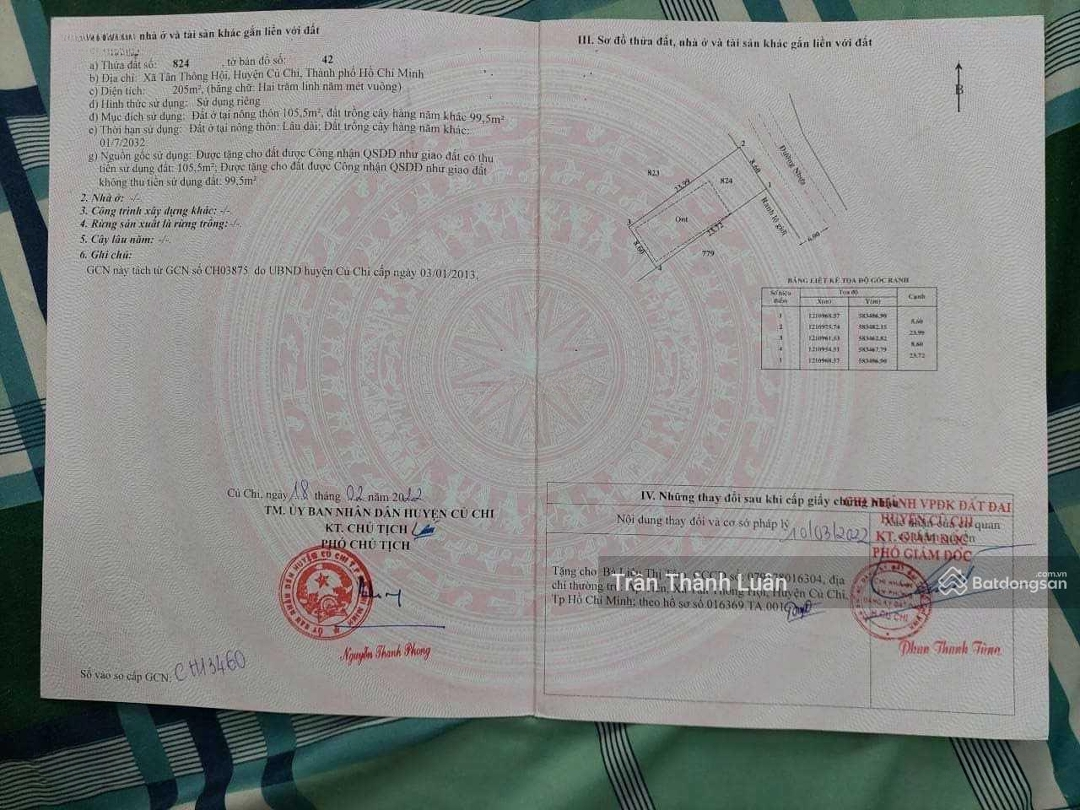 nhà ở và tài sản khác gắn liền với đất
a) Thửa đất số: 824 , tờ bản đồ số: 42
b) Địa chỉ: Xã Tân Thông Hội, Huyện Củ Chi, Thành phố Hồ Chí Minh
c) Diện tích: 205m², (bằng chữ: Hai trăm linh năm mét vuông)
d) Hình thức sử dụng: Sử dụng riêng
đ) Mục đích sử dụng: Đất ở tại nông thôn 105,5m², đất trồng cây hàng năm khác 99,5m²
e) Thời hạn sử dụng: Đất ở tại nông thôn: Lâu dài; Đất trồng cây hàng năm khác:
01/7/2032
g) Nguồn gốc sử dụng: Được tặng cho đất được Công nhận QSDĐ như giao đất có thu
tiền sử dụng đất: 105,5m²; Được tặng cho đất được Công nhận QSDĐ như giao đất
không thu tiền sử dụng đất: 99,5m²
2. Nhà ở: -/-
3. Công trình xây dựng khác: -/-
4. Rừng sản xuất là rừng trồng: -/-
5. Cây lâu năm: -/-
6. Ghi chú:
GCN này tách từ GCN số CH03875 do UBND huyện Củ Chi cấp ngày 03/01/2013.
Củ Chi, ngày 18 tháng 02 năm 2022
TM. ỦY BAN NHÂN DÂN HUYỆN CỦ CHI
KT. CHỦ TỊCH
PHÓ CHỦ TỊCH
Nguyễn Thanh Phong
Số vào sổ cấp GCN: CH13460
III. Sơ đồ thửa đất, nhà ở và tài sản khác gắn liền với đất
B
2
823
8.60
Đường Nhựa
23.99
824
1
Ont
Ranh lộ giới
3
23.72
8.60
779
6.00
4
BẢNG LIỆT KÊ TỌA ĐỘ GÓC RANH
Số hiệu điểm Tọa độ Cạnh
X(m) Y(m)
1 1210968.57 583486.90
8.60
2 1210975.74 583482.15
23.99
3 1210961.53 583462.82
8.60
4 1210954.51 583467.79
23.72
1 1210968.57 583486.90
IV. Những thay đổi sau khi cấp giấy chứng nhận
Nội dung thay đổi và cơ sở pháp lý
Xác nhận của cơ quan
CHI NHÁNH VPĐK ĐẤT ĐAI
HUYỆN CỦ CHI
KT. GIÁM ĐỐC
PHÓ GIÁM ĐỐC
10/03/2022
Tặng cho Bà Thị 016304, địa
chỉ thường Hội, Huyện Củ Chi,
Tp Hồ Chí Minh; theo hồ sơ số 016369 TA 001
Phan Thanh Tùng
Trần Thành Luân
Batdongsan.com.vn